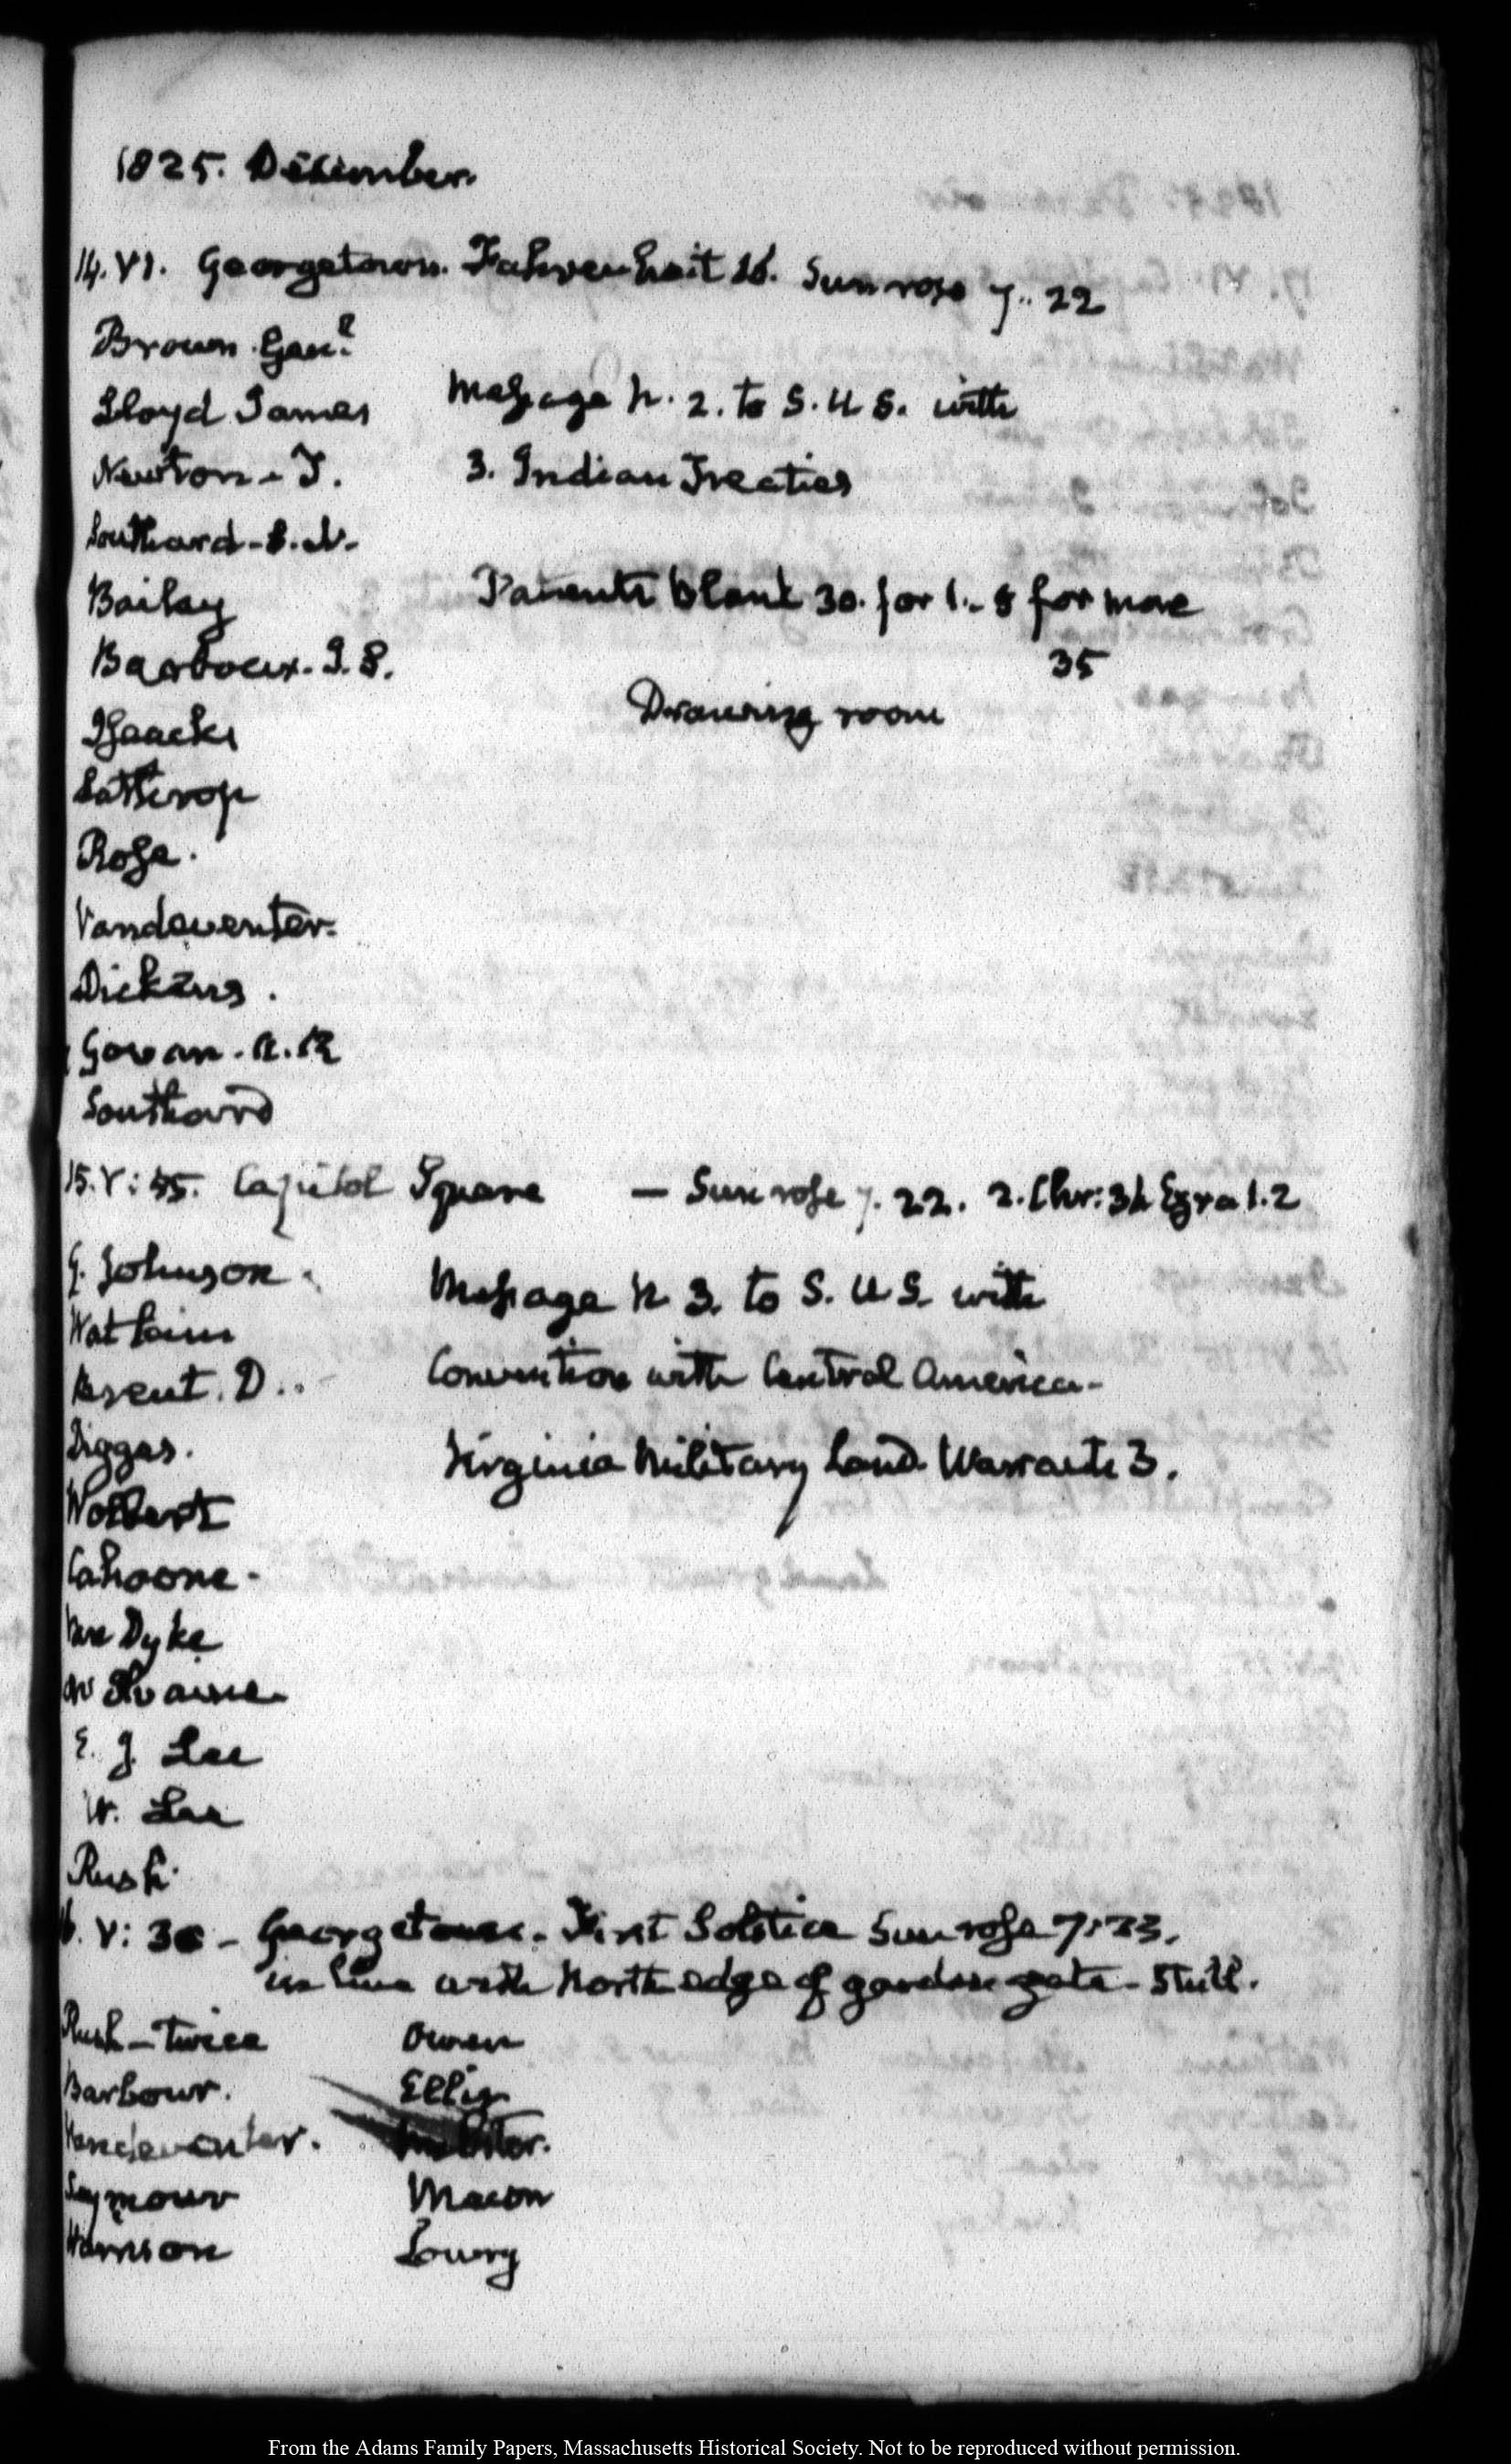 1825. December.
14. VI. Georgetown. Fahrenheit 16. Sun rose 7.. 22
Brown. Genl.
Lloyd James
Message N. 2. to S. U S. with
Newton - T.
3. Indian Treaties
Southard - S. L.
Bailey
Patents blank 30. for 1.. 5 for more
Barbour. J. S.
35
Drawing room
Isaacks
Lathrop
Rose.
Vandeventer.
Dickins.
Govan. A. R
Southard
15. V: 45. Capitol Square — Sun rose 7. 22. 2. Chr: 36 Ezra 1. 2
Johnson.
Message N 3. to S. U S. with
Watkins
Brent. D..
Convention with Central America -
Digges.
Virginia Military Land. Warrants 3.
Wolbert
Cahoone -
Van Dyke
E. J. Lee
W. Lee
Rush.
16. V: 30 - Georgetown. First Solstice Sun rose 7: 23.
in line with North edge of garden gate - Still.
Rush - twice Owen
Barbour. Ellis
Vandeventer. Webster.
Seymour Macon
Harrison Lowry
From the Adams Family Papers, Massachusetts Historical Society. Not to be reproduced without permission.